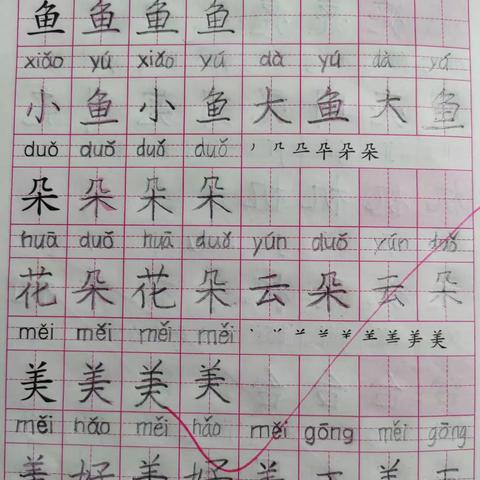 鱼 鱼 鱼 鱼
xiǎo yú xiǎo yú dà yú dà yú
小 鱼 小 鱼 大 鱼 大 鱼
duǒ duǒ duǒ duǒ
朵 朵 朵 朵
huā duǒ huā duǒ yún duǒ yún duǒ
花 朵 花 朵 云 朵 云 朵
měi měi měi měi
美 美 美 美
měi hǎo měi hǎo měi gōng měi gōng
美 好 美 好 美 工 美 工